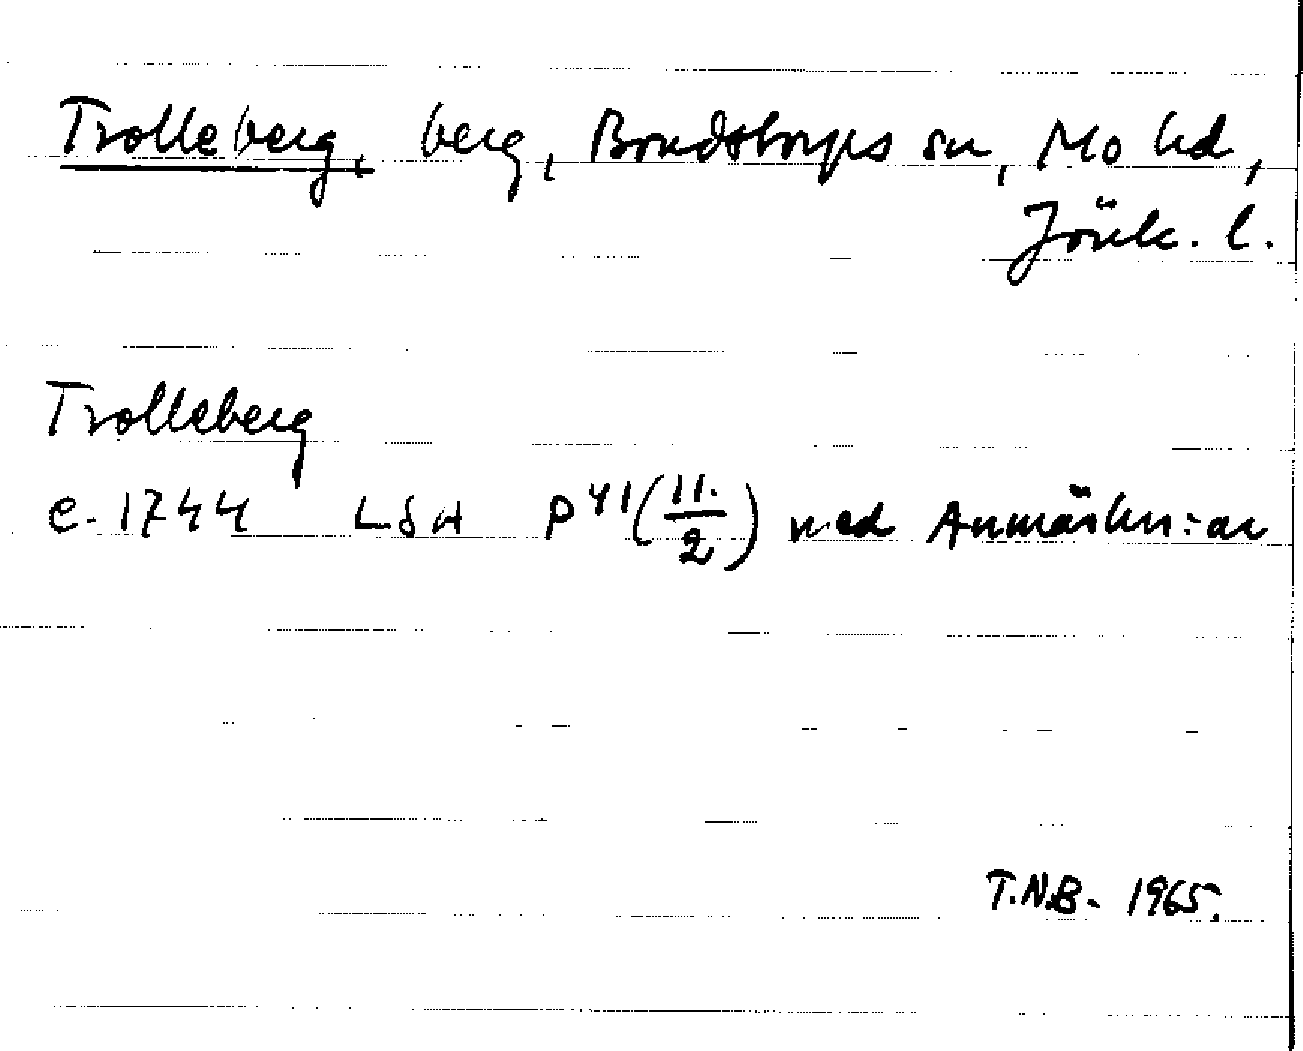 Trolleberg, berg, Bondstorps sn, Mo hd,
Jönk. l.
Trolleberg
c. 1744 LSA P 41 (11. / 2) med Anmärkn:ar
T.N.B. 1965.